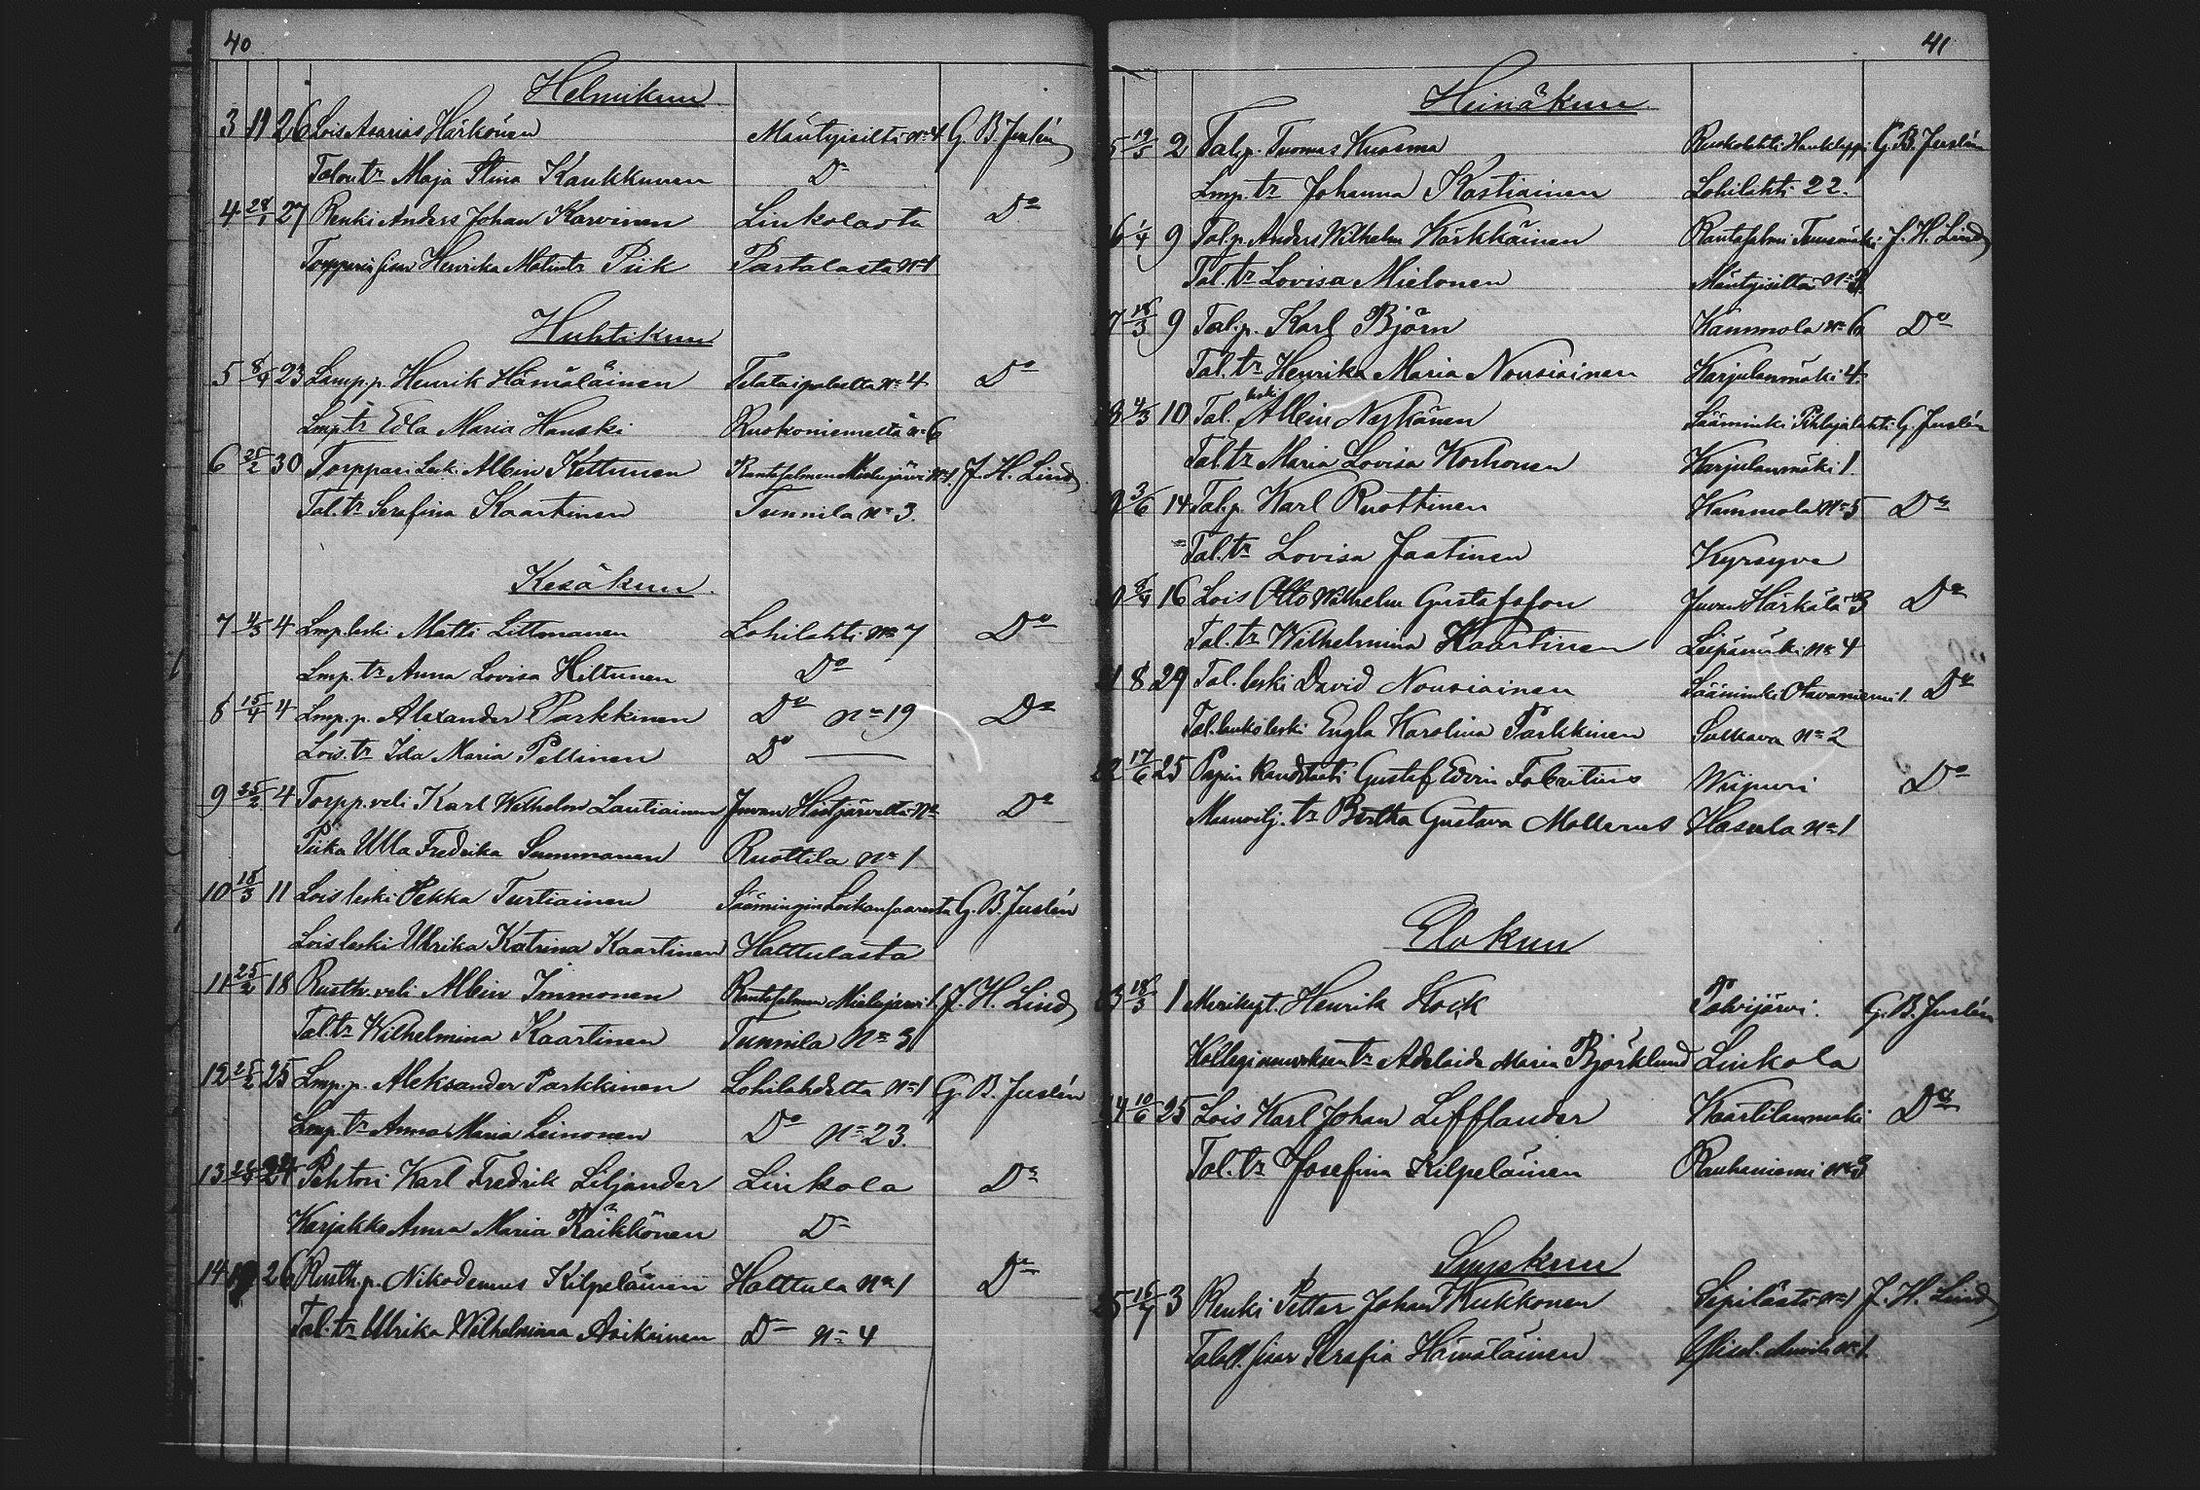 40
Helmikuu
3 11 26 Lois Asarias Härkönen Mäntyisiltä No 4 G. B. Juslén
Talontr Maja Stina Kaukkunen Do
4 28/1 27 Renki Anders Johan Karvinen Linkolasta Do
Torpparin sisar Henrika Matintr Piik Partalasta No 1
Huhtikuu
5 8/4 23 Lamp.p. Henrik Hämäläinen Telataipaleelta No 4 Do
Lmp.tr Edla Maria Hauski Ruokoniemeltä No 6
6 25/2 30 Torppari leski Albin Kettunen Rantasalmen No 1 J. H. Lind
Tal. tr Serafina Kaartinen Tunnila No 3.
Kesäkuu
7 4/3 4 Lmp leski Matti Littmanen Lohilahti No 7 Do
Lmp. tr Anna Lovisa Hiltunen Do
8 15/4 4 Lmp. p. Alexander Parkkinen Do No 19 Do
Lois. tr Ida Maria Pellinen Do
9 25/2 4 Torpp. veli Karl Wilhelm Lautiainen Juvan No Do
Piika Ulla Fredrika Summanen Ruottila No 1
10 18/3 11 Lois leski Pekka Turtiainen Säämingin G. B. Juslén
Lois leski Ulrika Katrina Kaartinen Halttulasta
11 25/2 18 Rusth. veli Albin Immonen Rantasalmen 1. J. H. Lind
Tal tr Wilhelmina Kaartinen Tunnila No 3
12 25 Lmp. p. Aleksander Parkkinen Lohilahdelta No 1 G. B. Juslén
Lmp. tr Anna Maria Leinonen Do No 23.
13 24 Pehtori Karl Fredrik Liljander Linkola Do
Karjakko Anna Maria Räikkönen Do
14 26 Rusth. p. Nikodemus Kilpeläinen Halttula No 1 Do
Tal. tr Ulrika Wilhelmina Asikainen Do No 4
41
Heinäkuu
5 19/5 2 Tal.p. Tuomas Kuosma Ruokolahti G. B. Juslén
Lmp. tr Johanna Kostiainen Lohilahti 22.
6 1/4 9 Tal.p. Anders Wilhelm Kärkkäinen Rantasalmi J. H. Lind
Tal. tr Lovisa Mielonen Mäntyisiltä No 3
7 18/3 9 Tal.p. Karl Björn Kammola No 6 Do
Tal. tr Henrika Maria Nousiainen Karjulanmäki 4.
8 4/3 10 Tal. leski Albin Neykänen Sääminki Pihlajalahti G. Juslén
Tal. tr Maria Lovisa Korhonen Karjulanmäki 1.
9 3/6 14 Tal.p. Karl Ruottinen Kammola No 5 Do
Tal. tr Lovisa Jaatinen Kyrsyvä
0 9/4 16 Lois Otto Wilhelm Gustafsson Juvan Härkälä 3 Do
Tal. tr Wilhelmina Kaartinen Leipämäki No 4
1 8 29 Tal. leski David Nousiainen Sääminki Otavaniemi 1. Do
Tal. leski Engla Karolina Parkkinen Sulkava No 2
2 17/6 25 Papin Gustaf Edvin Fabritius Wiipuri Do
tr Bertha Gustava Mollerus Hasula No 1
Elokuu
3 18/3 1 Merikapt. Henrik Kock Palvijärvi. G. B. Juslén
tr Adelaide Maria Björklund Linkola
4 10/6 25 Lois Karl Johan Lifflander Kaartilanmäki Do
Tal. tr Josefina Kilpeläinen Rauhaniemi No 3
Syyskuu
5 16/7 3 Renki Petter Johan Kukkonen Sipilästä No 1 J. H. Lind
sisar Serafia Hämäläinen No 1.